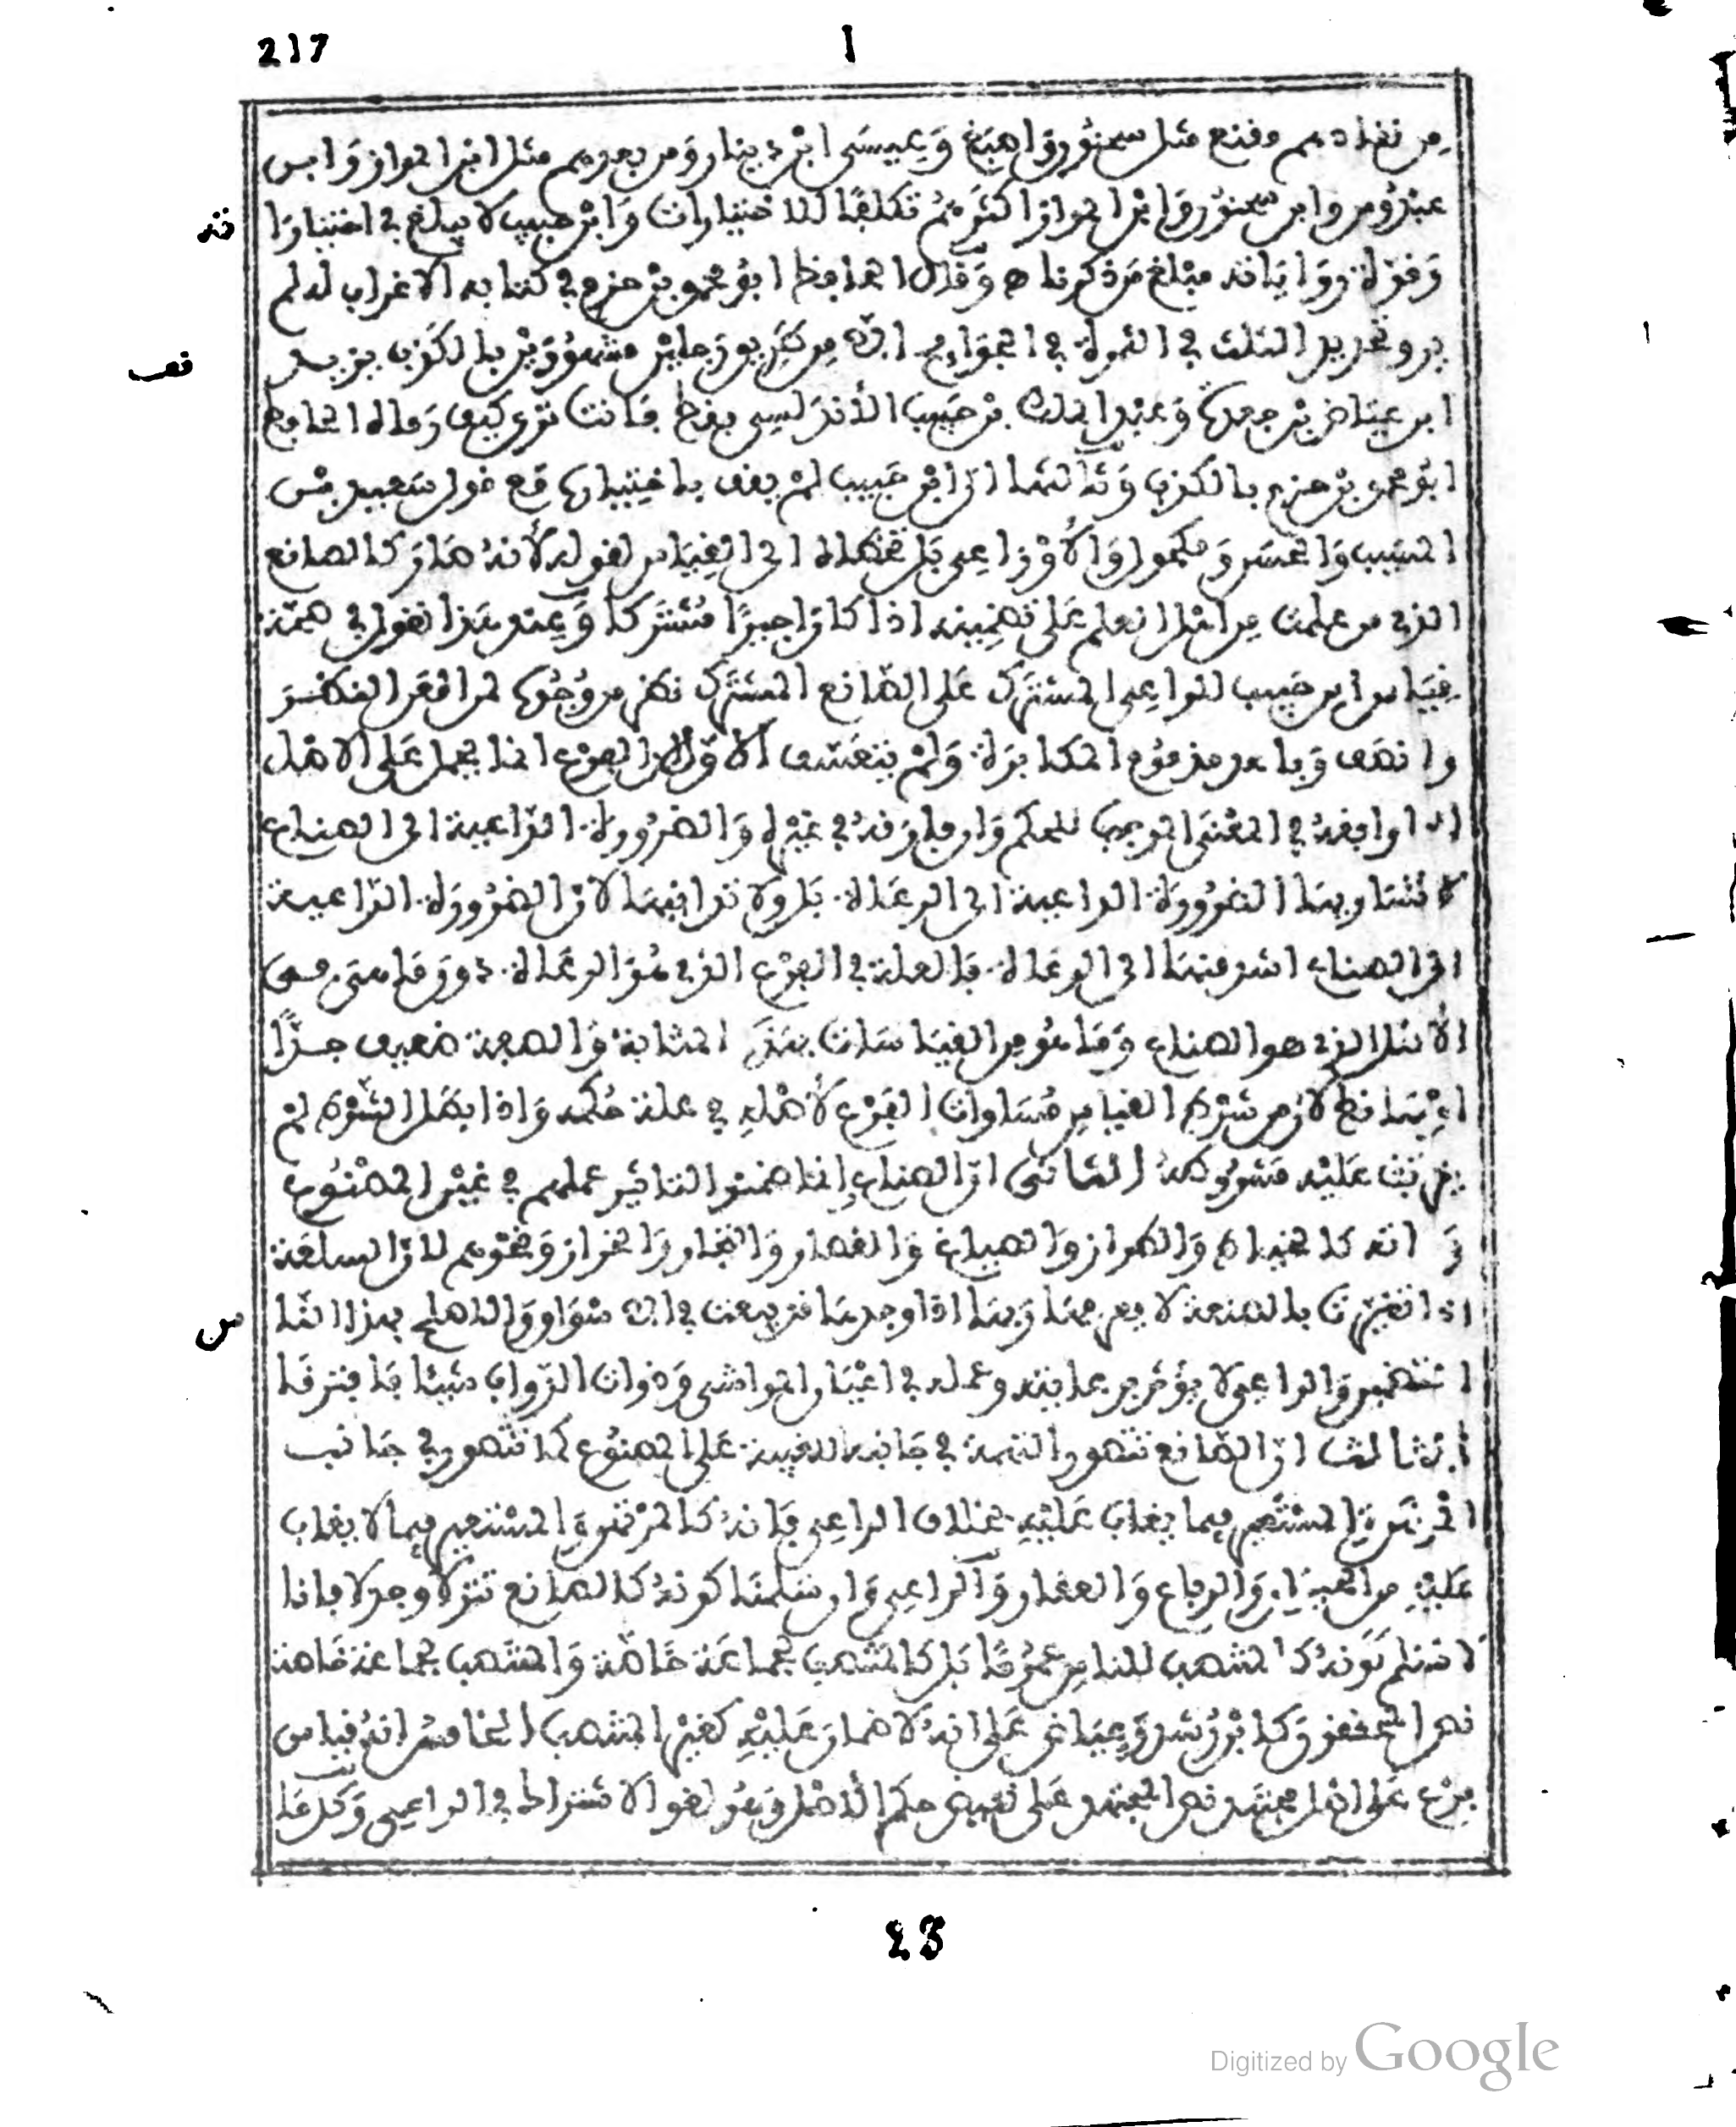 217
1
من نقادهم وقنع مثل سحنون واصبغ وعيسى ابن دينار ومن بعدهم مثل ابن المواز وابن
عبدوس وابن سحنون وابن المواز اكثرهم تكلفا للاختيارات وابن حبيب لا يبلغ في اختياراته
وقوة رواياته مبلغ من ذكرناه وقال الحافظ ابو محمد بن حزم في كتابه الاعراب له لم
يرو تحديد الثلث في الثمرة في الجوايح الا من طريق وجابر مشهور بالكذب يزيد
ابن عياض بن جعدبة وعبد الملك بن حبيب الأندلسي بفرط فانت ترى كيف رماه الحافظ
ابو محمد بن حزم بالكذب وثالثها ان ابن حبيب لم يقف باختيارها مع قول سعيد بن
المسيب والحسن ومكحول والأوزاعي بل تخطاه الى القياس لقوله لأنه صار كالصانع
الذي من علمت من اهل العلم على تضمينه اذا كان اجيرا مشتركا وعند هذا نقول في صحة
قياس ابن حبيب للراعي المشترك على الصانع المشترك نظر من وجوه لمن امعن النظر
وانصف وباعد مذموم المكابرة ولم يتعسف الاول ان الفرع انما يحمل على الاصل
اذا وافقه في المعنى الموجب للحكم وان فارقه في غيره والضرورة الداعية الى الصناع
لا تساويها الضرورة الداعية الى الرعاة بل ولا تدانيها لان الضرورة الداعية
الى الصناع اشد منها الى الرعاة فالعلة في الفرع الذي هو الرعاة دون ما هي في
الأصل الذي هو الصناع وما هو من القياسات بهذه المثابة والصفة ضعيف جدا
او ساقط لان من شرط القياس مساوات الفرع لأصله في علة حكمه واذا بطل الشرط لم
يترتب عليه مشروطه الثاني ان الصناع انما ضمنوا لتاثير عملهم في غير المصنوع
انه كالخياط والطراز والصباغ والقصار والنجار والخراز ونحوهم لان السلعة
اذا تغيرت بالصنعة لا يعرفها ربها اذا وجدها قد بيعت في الاسواق والاصلح بهذا الشا
التضمين والراعي لا يؤثر برعايته وعمله في اعيان المواشي وذوات الدواب شيئا فافترقا
الثالث ان الصانع تتصور التهمة في جانبه لغيبته على المصنوع كما تتصور في جانب
المرتهن والمستعير فيما يغاب عليه بخلاف الراعي فانه كالمرتهن والمستعير فيما لا يغاب
عليه من الحيوان والرباع والعقار والراعي وان سلمنا كونه كالصانع تنزلا وجدلا فانا
لا نسلم كونه كالمنتصب للناس عموما بل كالمنتصب لجماعة خاصة والمنتصب لجماعة خاصة
نص المحققون كابن رشد وعياض على انه لا ضمان عليه كغير المنتصب الخامس انه قياس
فرع على اصل مجتهد نص المجتهد على نقيض حكم الأصل وهو لغو الاشتراط في الراعي وكل ما
23
Digitized by Google